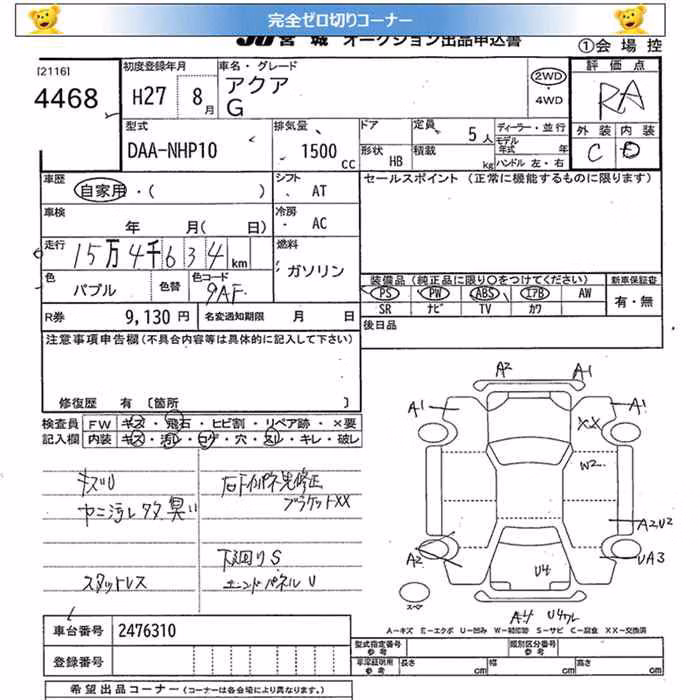 完全ゼロ切りコーナー
JU 宮城 オークション出品申込書
①会場控
[2116]
4468
初度登録年月
H27 8月
車名・グレード
アクア
G
2WD
・
4WD
評価点
RA
外装 内装
C D
型式
DAA-NHP10
排気量
1500 cc
ドア
形状 HB
定員 5人
積載 kg
ディーラー・並行
モデル年式 年
ハンドル 左・右
車歴
自家用・( )
シフト
AT
セールスポイント (正常に機能するものに限ります)
車検
年 月( 日)
冷房
AC
走行
15万4千634 km
燃料
ガソリン
色
パプル
色替
色コード
9AF
装備品 (純正品に限り○をつけてください)
新車保証書
PS PW ABS エアB AW
SR ナビ TV カワ
有・無
R券 9,130円
名変通知期限 月 日
後日品
注意事項申告欄(不具合内容等は具体的に記入して下さい)
修復歴 有 〔箇所 〕
検査員
記入欄
FW キズ・飛石・ヒビ割・リペア跡・×要
内装 キズ・汚レ・コゲ・穴・スレ・キレ・破レ
キズU
ヤニ汚レ 臭い
スタットレス
ブラケットXX
下廻りS
エンドパネルU
A2
A1
A1
A1
XX
W2
A2U2
A2
UA3
U4
スペア
A4 U4
A−キズ E−エクボ U−凹み W−補修跡 S−サビ C−腐食 XX−交換済
車台番号 2476310
登録番号
型式指定番号
参考
類別区分番号
参考
車検証明用
参考
長さ cm
幅 cm
高さ cm
希望出品コーナー (コーナーは各会場により異なります。)